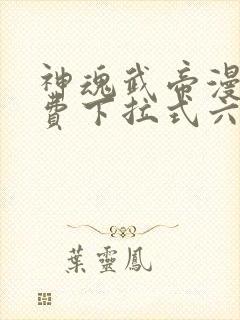 神魂武帝漫
費下拉式六
葉靈鳳